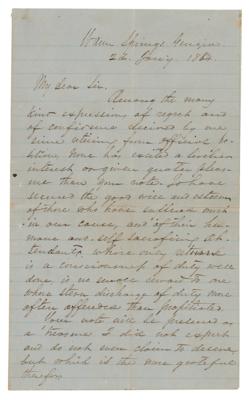 Warm Springs, Georgia
22. Jan'y. 1864.
My dear Sir.
Among the many
kind expressions of regret and
of confidence received by me
since retiring from official po-
sition, none has excited a livelier
interest or given greater pleas-
ure than your note. To have
secured the good will and esteem
of those who have suffered much
in our cause, and of their hu-
mane and self sacrificing at-
tendants whose only
is a consciousness of duty well
done, is no small reward to one
whose stern discharge of duty more
often offended than propitiated.
Your note will be preserved as
a treasure I did not expect
and do not even claim to deserve,
but which is the more grateful
therefor.